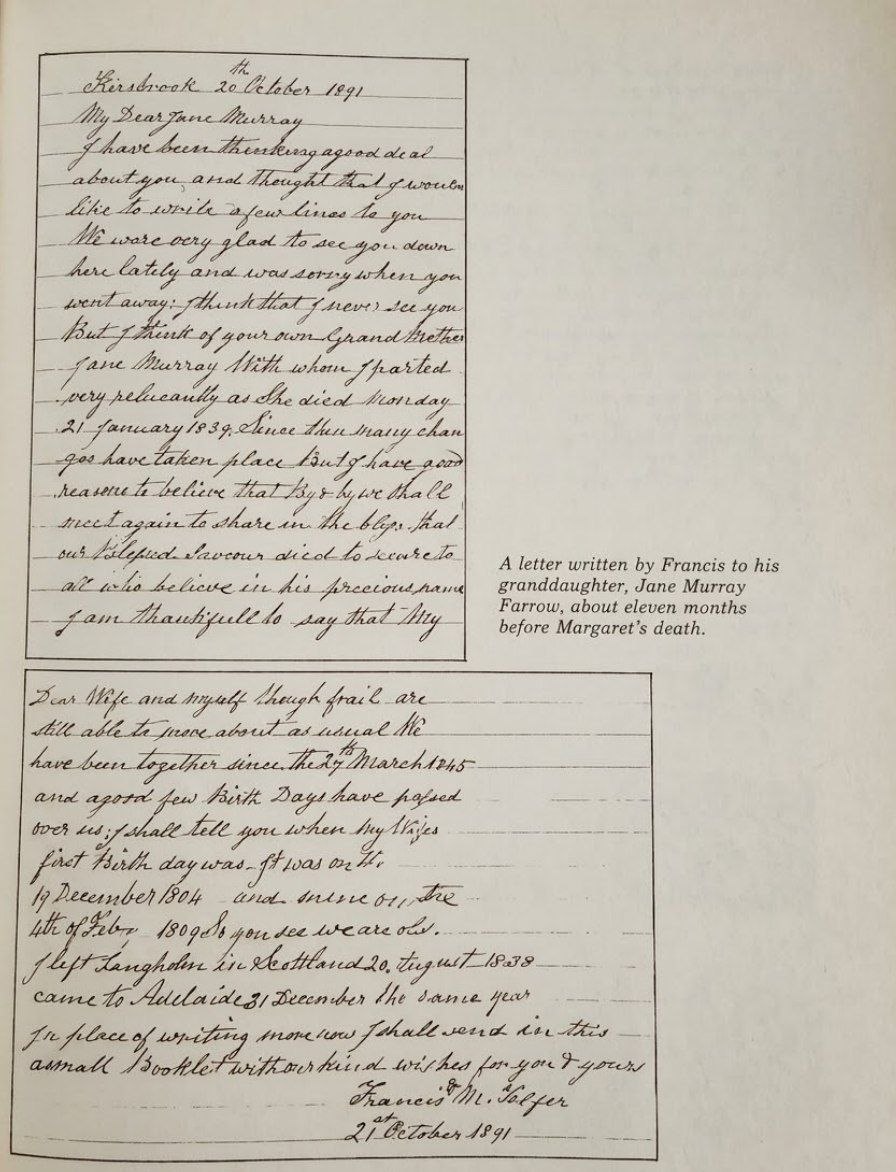 Kersbrook 20th October 1891
My Dear Jane Murray
I have been thinking a good deal
about you, and thought that I would
like to write a few lines to you
We ware very glad to see you down
here lately and was sorry when you
went away: I think that I never see you
But I think of your own Grand Mother
Jane Murray With whom I parted
very relucantly as She died Monday
21 January 1839. Since then many chan
ges have taken place But I have good
reasone to believe that By & by we shall
meet again to share in the bliss that
our Blessed Saviour died to secure to
all who believe in his precious name
I am thankfull to say that My
A letter written by Francis to his
granddaughter, Jane Murray
Farrow, about eleven months
before Margaret's death.
Dear Wife and myself though frail are
still able to move about as usual We
have been together since the 27th March 1845
and a good few Birth Days have passed
over us; I shall tell you when My Wifes
first Birth day was - It was on the
19 December 1804 and mine on the
4th of Feby 1809 So you see we are old.
I left Langholm in Scottland 20. August 1838
came to Adelaide 31 December the same year
In place of writing more now I shall send in this
a small Booklet with our kind wishes for you & yours
Francis & M. Telfer
21st October 1891